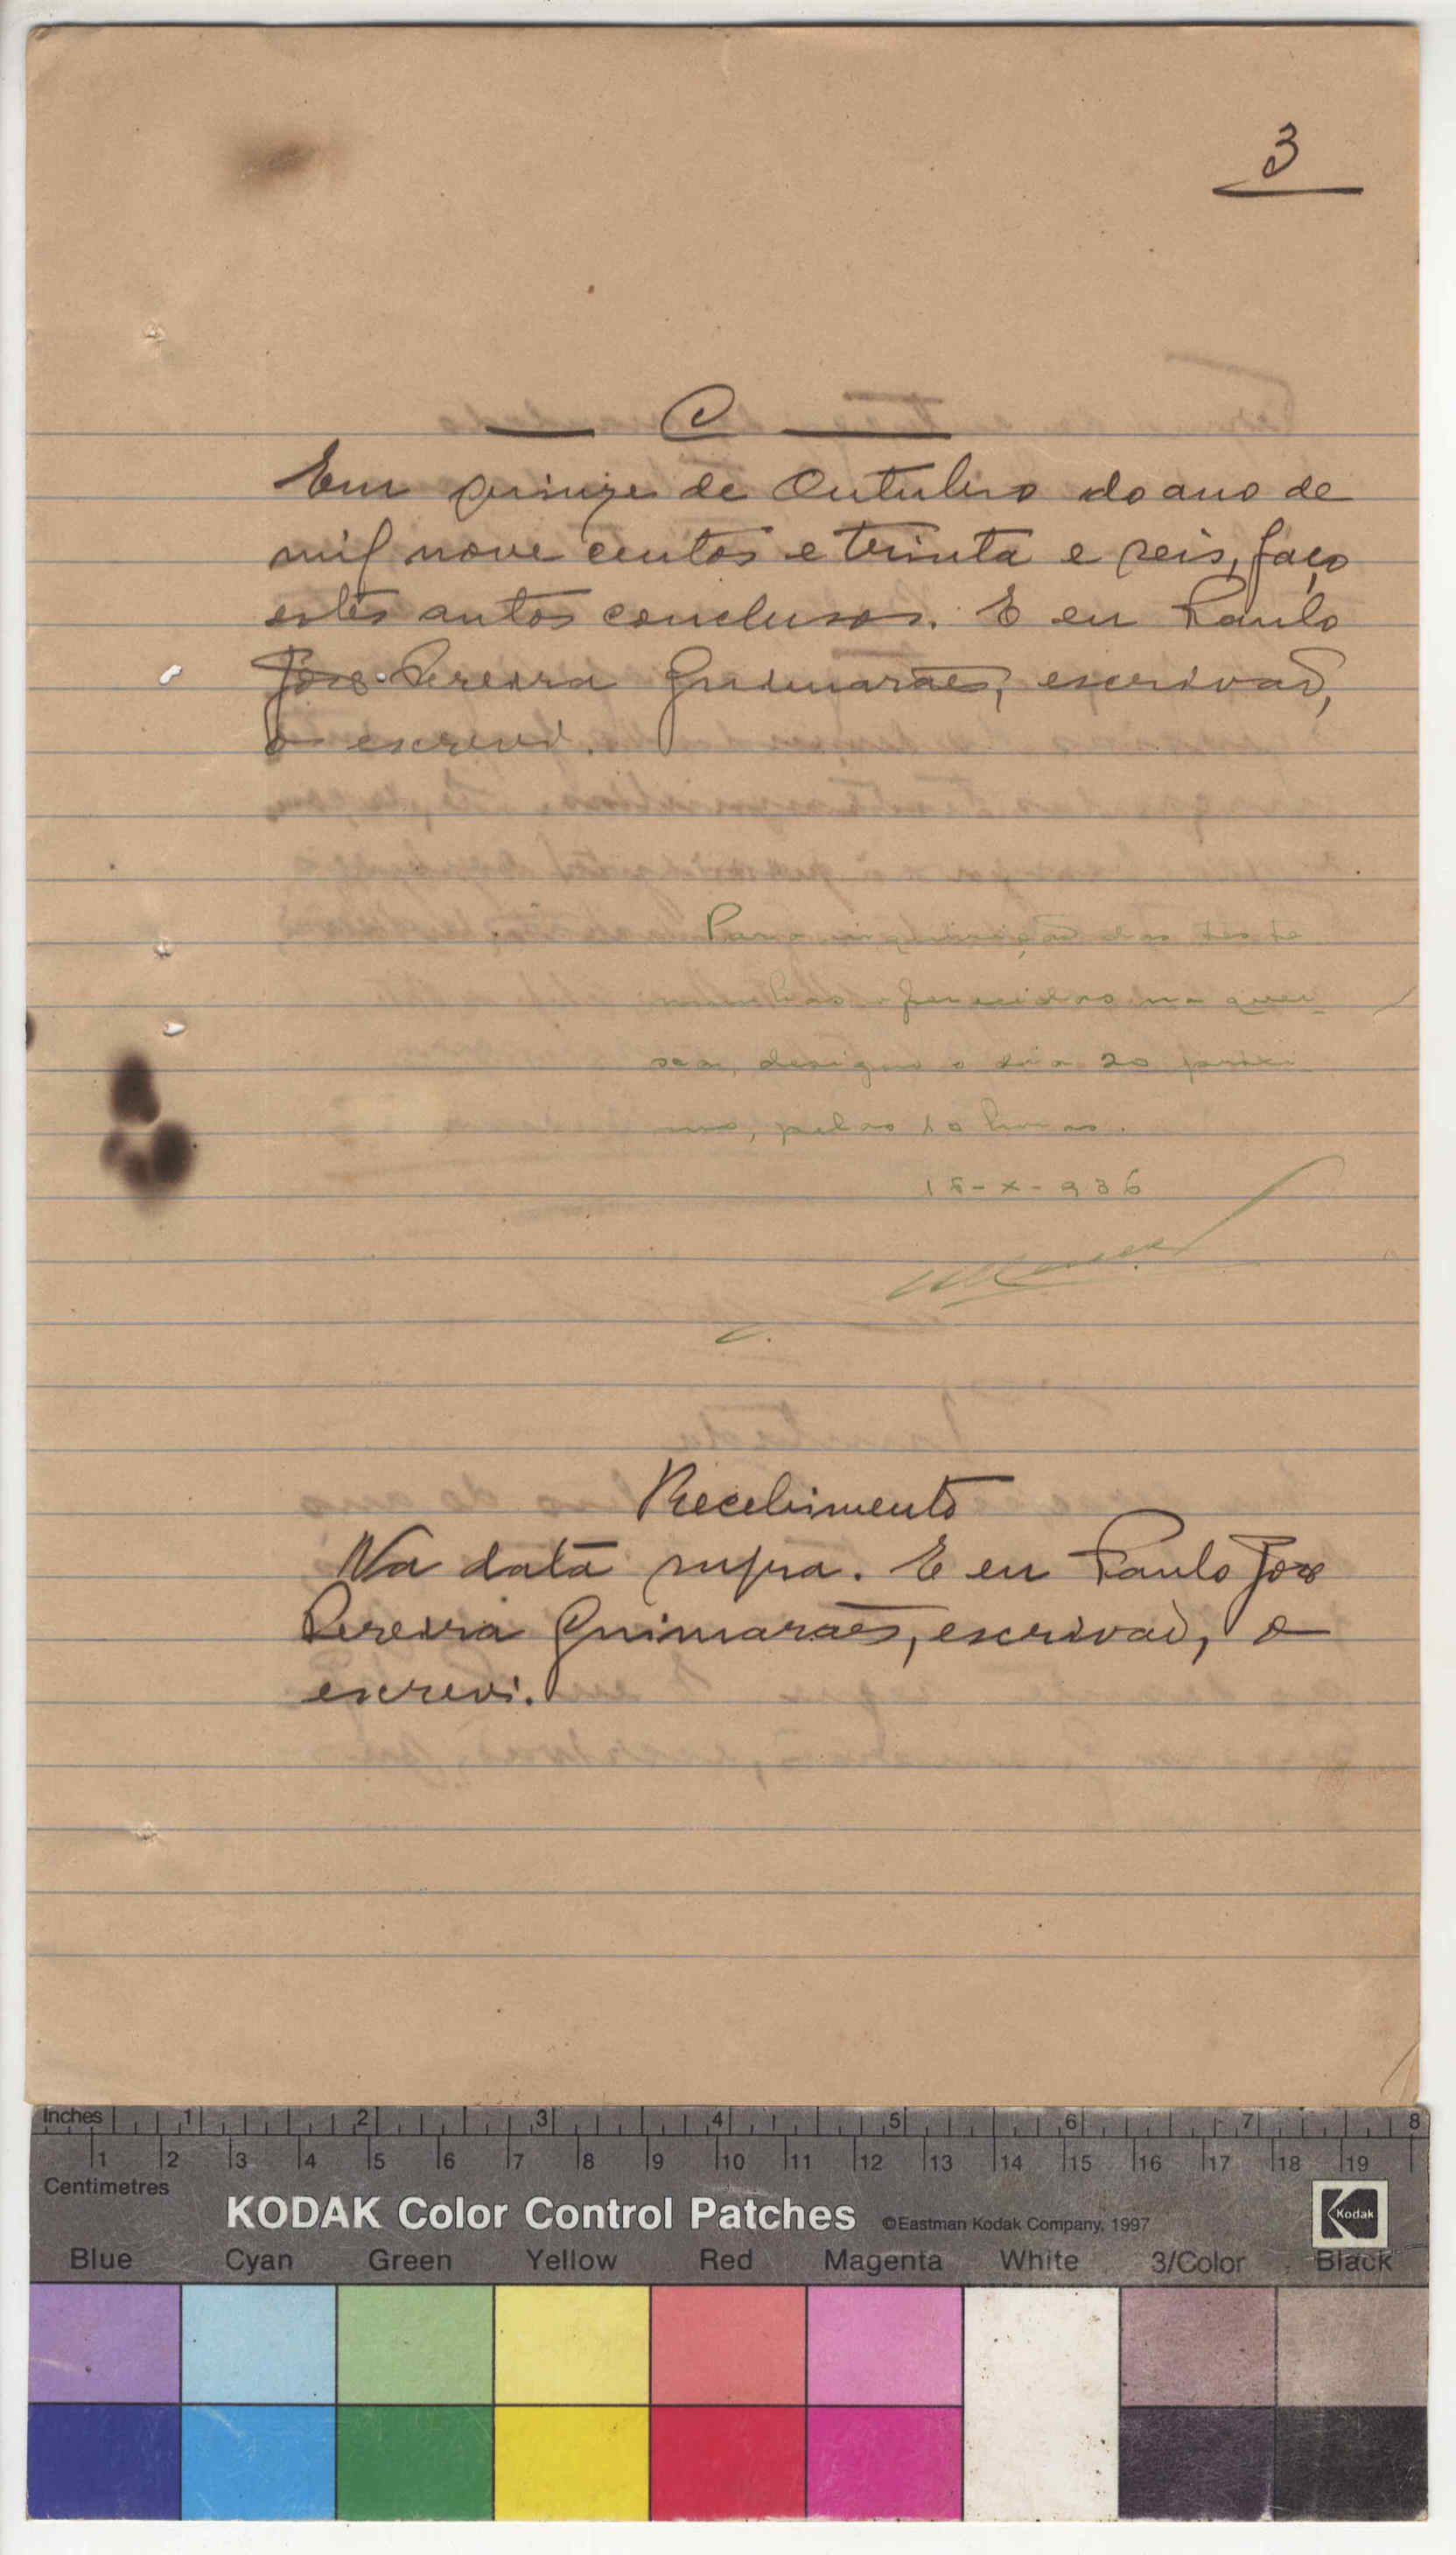 3
C
Em quinze de Outubro do ano de
mil nove centos e trinta e seis, faço
estes autos conclusos. E eu Paulo
José Pereira Guimarães, escrivão,
o escrevi.
Para inquirição das teste
munhas oferecidas na quei-
xa, designo o dia 20 próxi
mo, pelas 10 horas.
15-X-936
Recebimento
Na data supra. E eu Paulo José
Pereira Guimarães, escrivão, o
escrevi.
Inches 1 2 3 4 5 6 7 8
1 2 3 4 5 6 7 8 9 10 11 12 13 14 15 16 17 18 19
Centimetres
KODAK Color Control Patches ©Eastman Kodak Company, 1997 Kodak
Blue Cyan Green Yellow Red Magenta White 3/Color Black